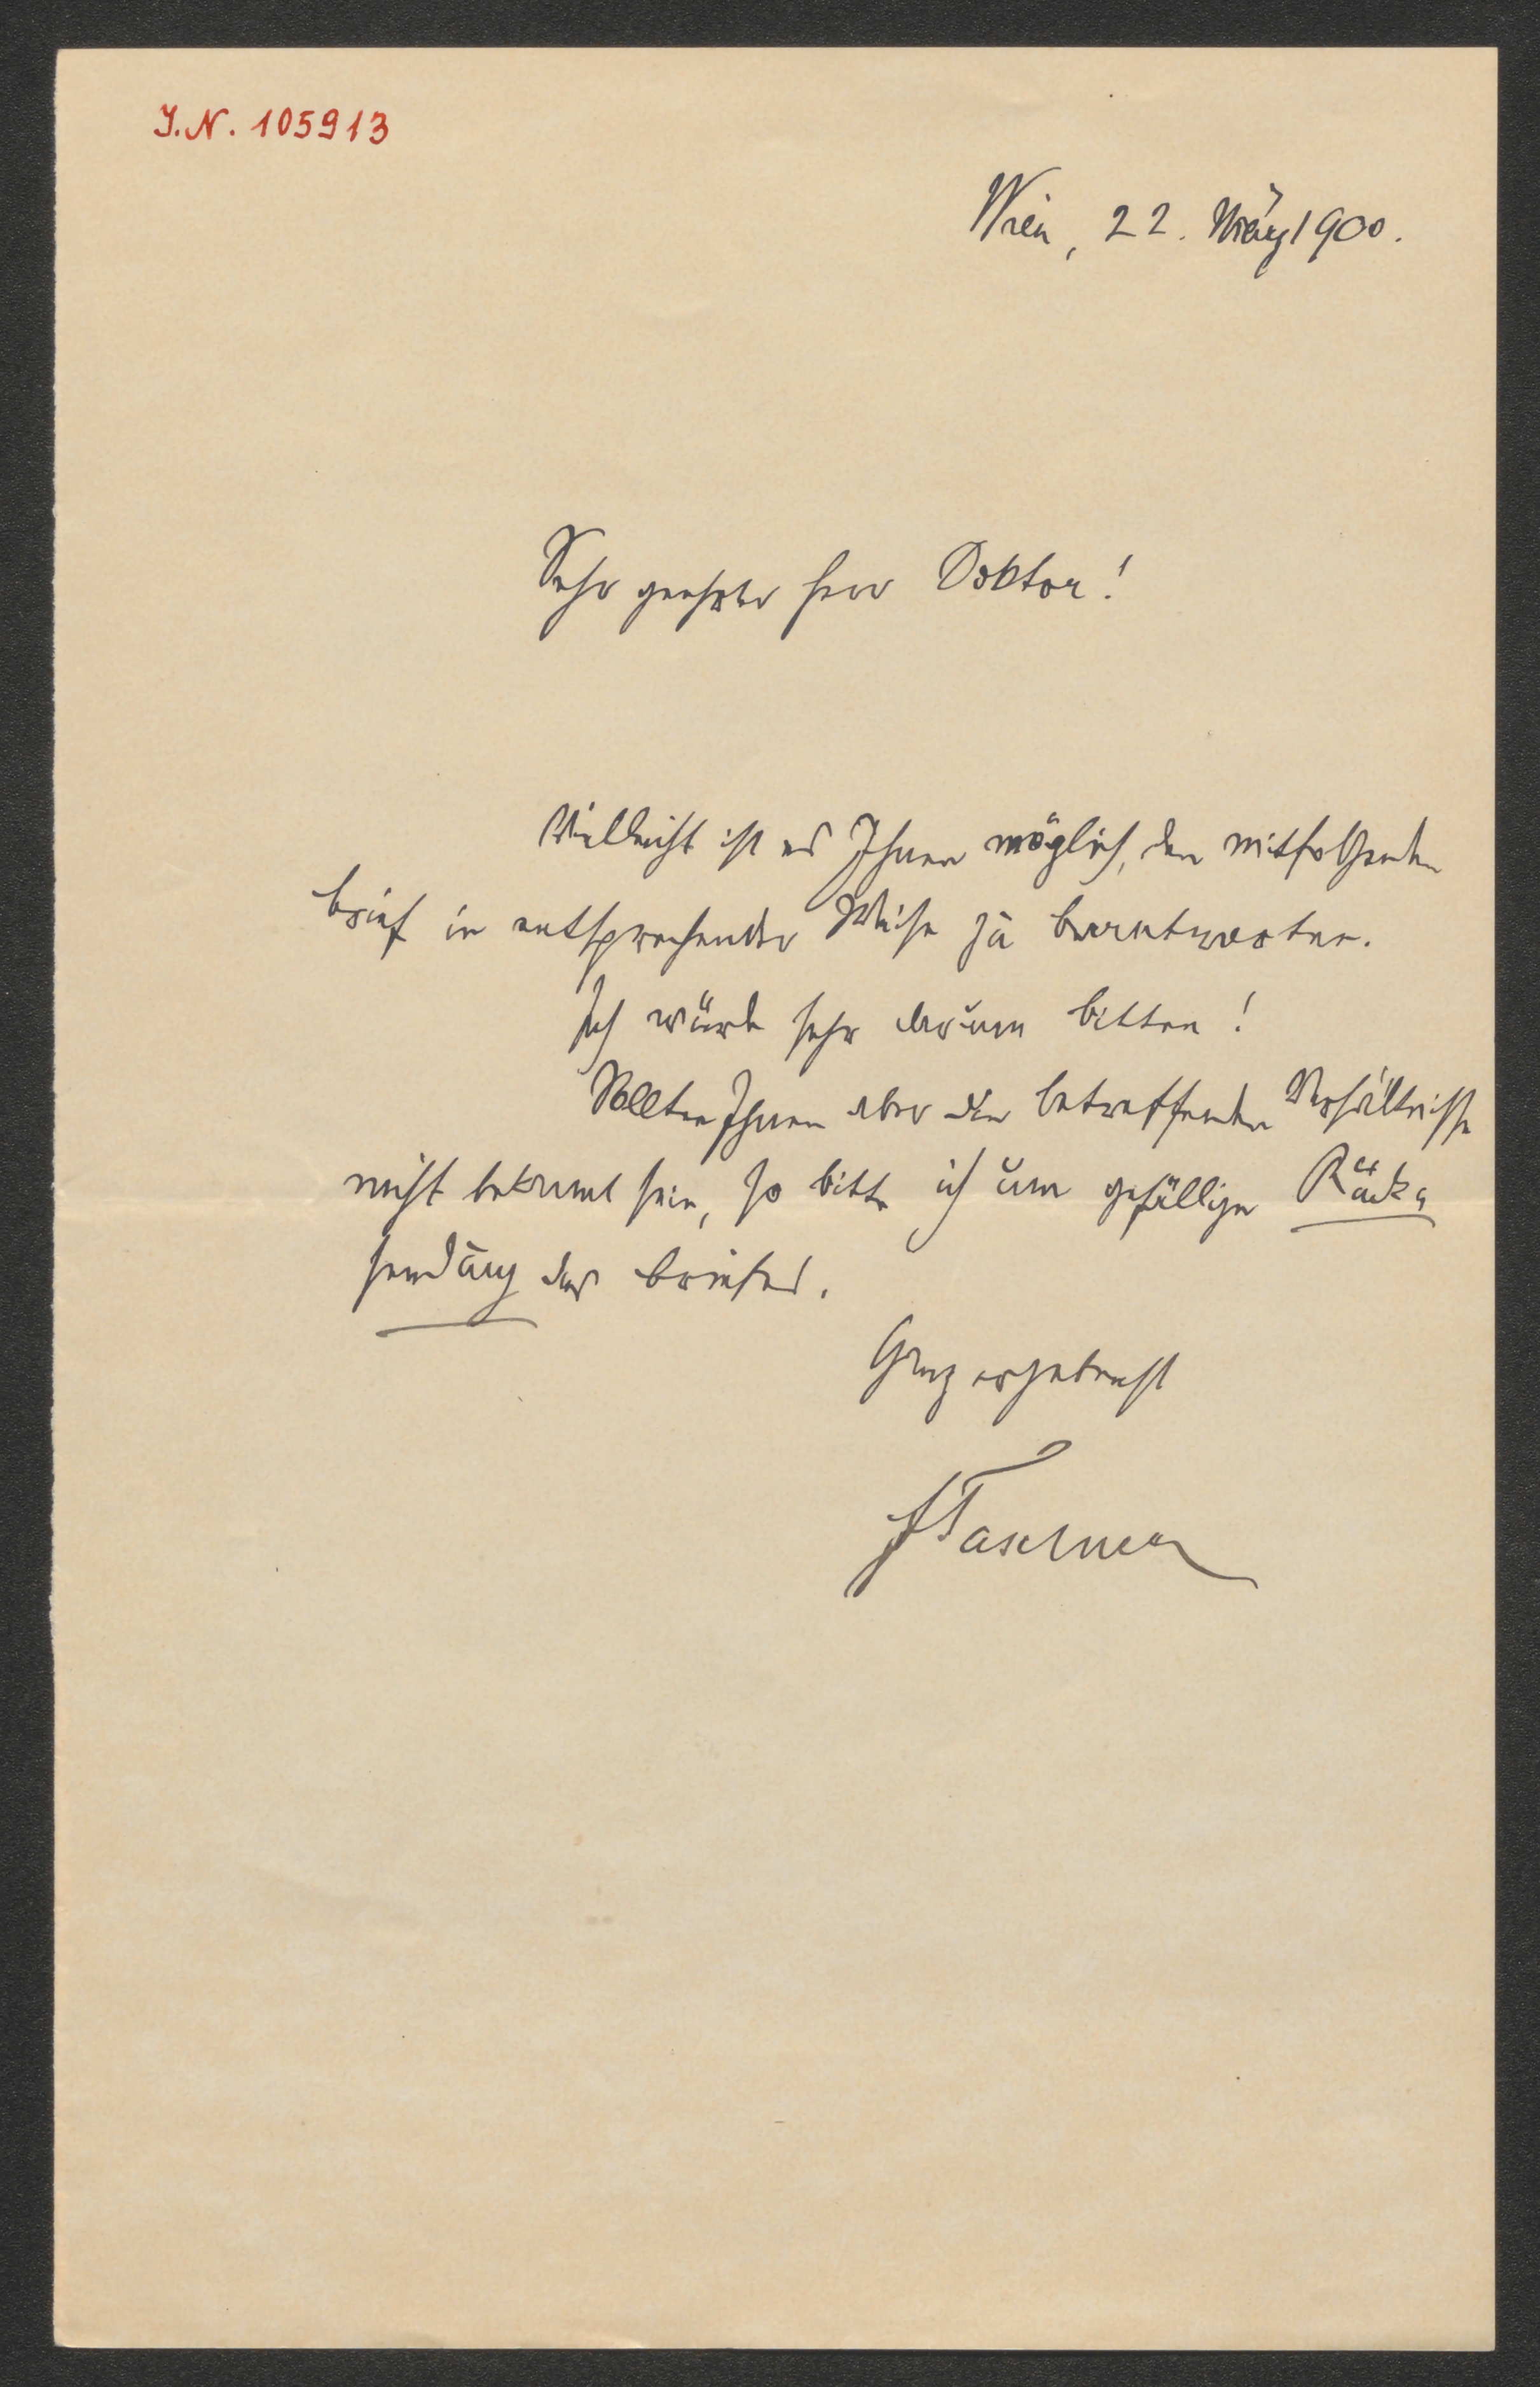 J.N. 105913
Wien, 22. März 1900.
Sehr geehrter Herr Doktor!
Vielleicht ist es Ihnen möglich, den mitfolgenden
Brief in entsprechender Weise zu beantworten.
Ich würde sehr darum bitten!
Sollten Ihnen aber die betreffenden Verhältnisse
nicht bekannt sein, so bitte ich um gefällige Rück-
sendung des Briefes.
Ganz ergebenst